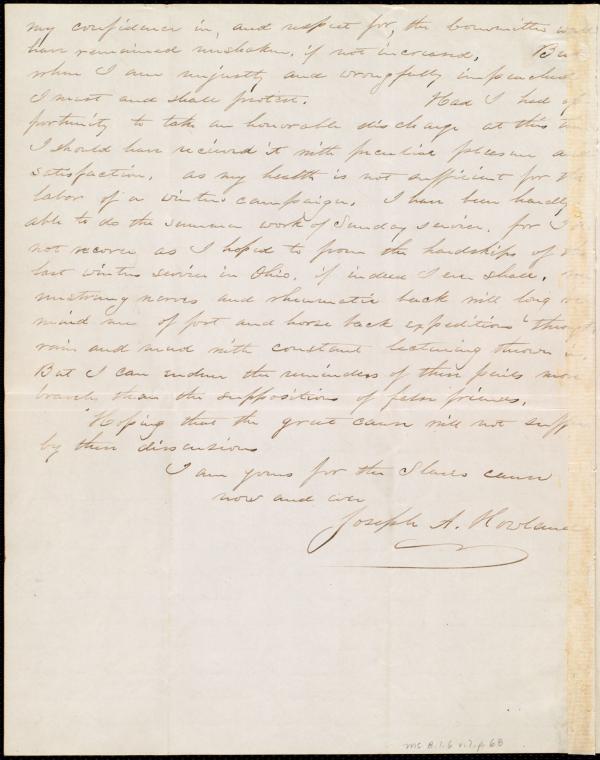 my confidence in, and respect for, the committee
have remained unshaken, if not increased. Bu
when I am unjustly and wrongfully impeached
I must and shall protest. Had I had op
portunity to take an honorable discharge at this
I should have received it with peculiar pleasure and
satisfaction, as my health is not sufficient for the
labor of a winter campaign. I have been hardly
able to do the summer work of Sunday service. for I
not recover as I hoped to from the hardships of
last winter service in Ohio, if indeed I ever shall,
unstrung nerves and rheumatic back will long re
mind me of foot and horse back expeditions through
rain and mud with constant lecturing thrown in.
But I can endure the reminders of these pains more
bravely than the suppositions of false friends.
Hoping that the great cause will not suffer
by these dissensions
I am yours for the Slaves cause
now and ever
Joseph A. Howland
MS B.1.6 v.7, p.68